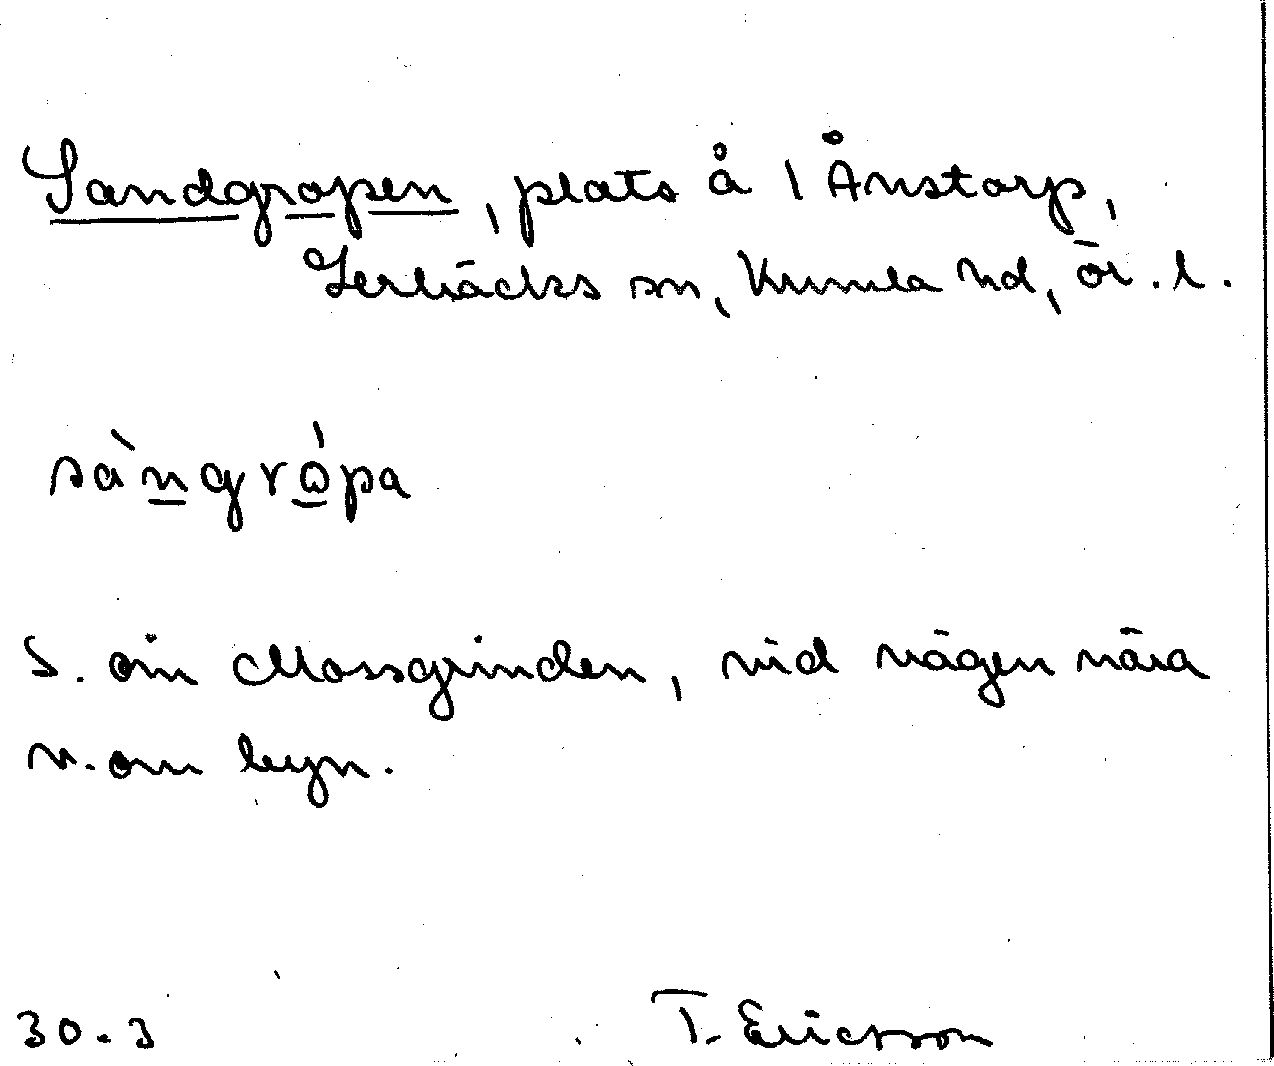 Sandgropen, plats å 1 Ånstorp,
Lerbäcks sn, Kumla hd, Ör. l.
sàngrópa
S. om Mossgrinden, vid vägen nära
n. om byn.
30.3 T. Ericsson